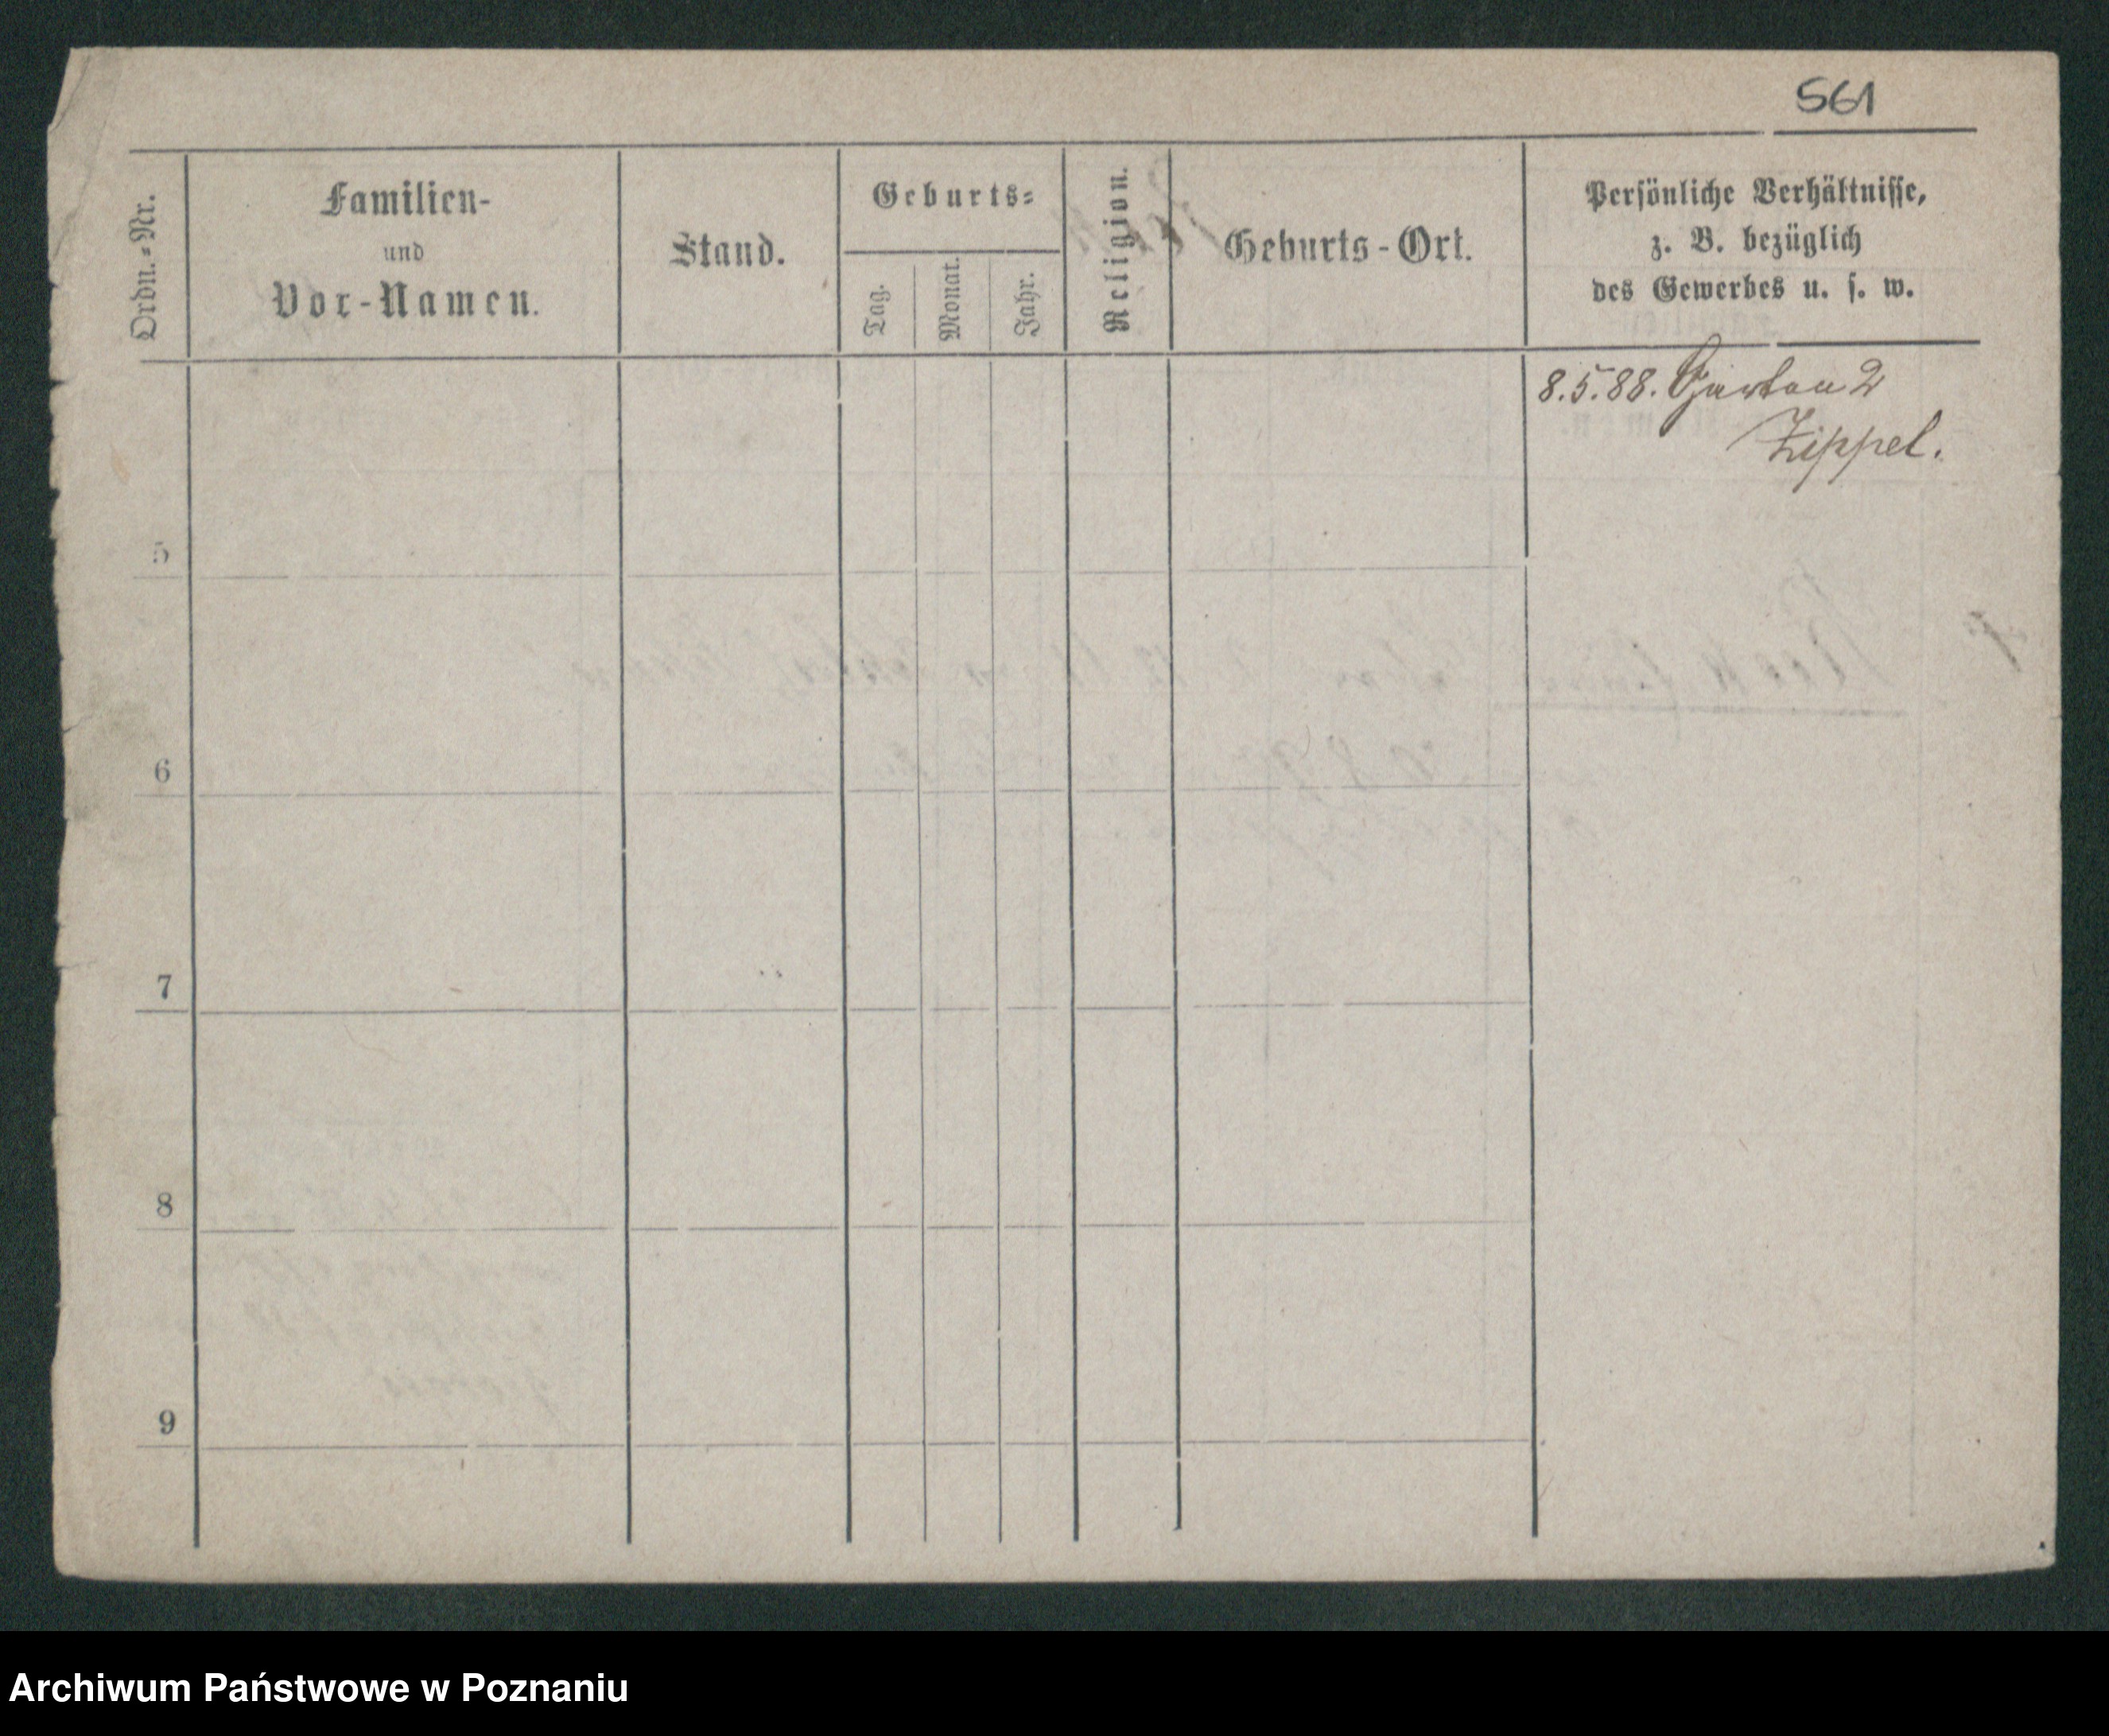 561
Ordn.-Nr.
Familien-
und
Vor-Namen.
Stand.
Geburts-
Tag.
Monat.
Jahr.
Religion.
Geburts-Ort.
Persönliche Verhältnisse,
z. B. bezüglich
des Gewerbes u. s. w.
8.5.88. 2
Zippel.
5
6
7
8
9
Archiwum Państwowe w Poznaniu